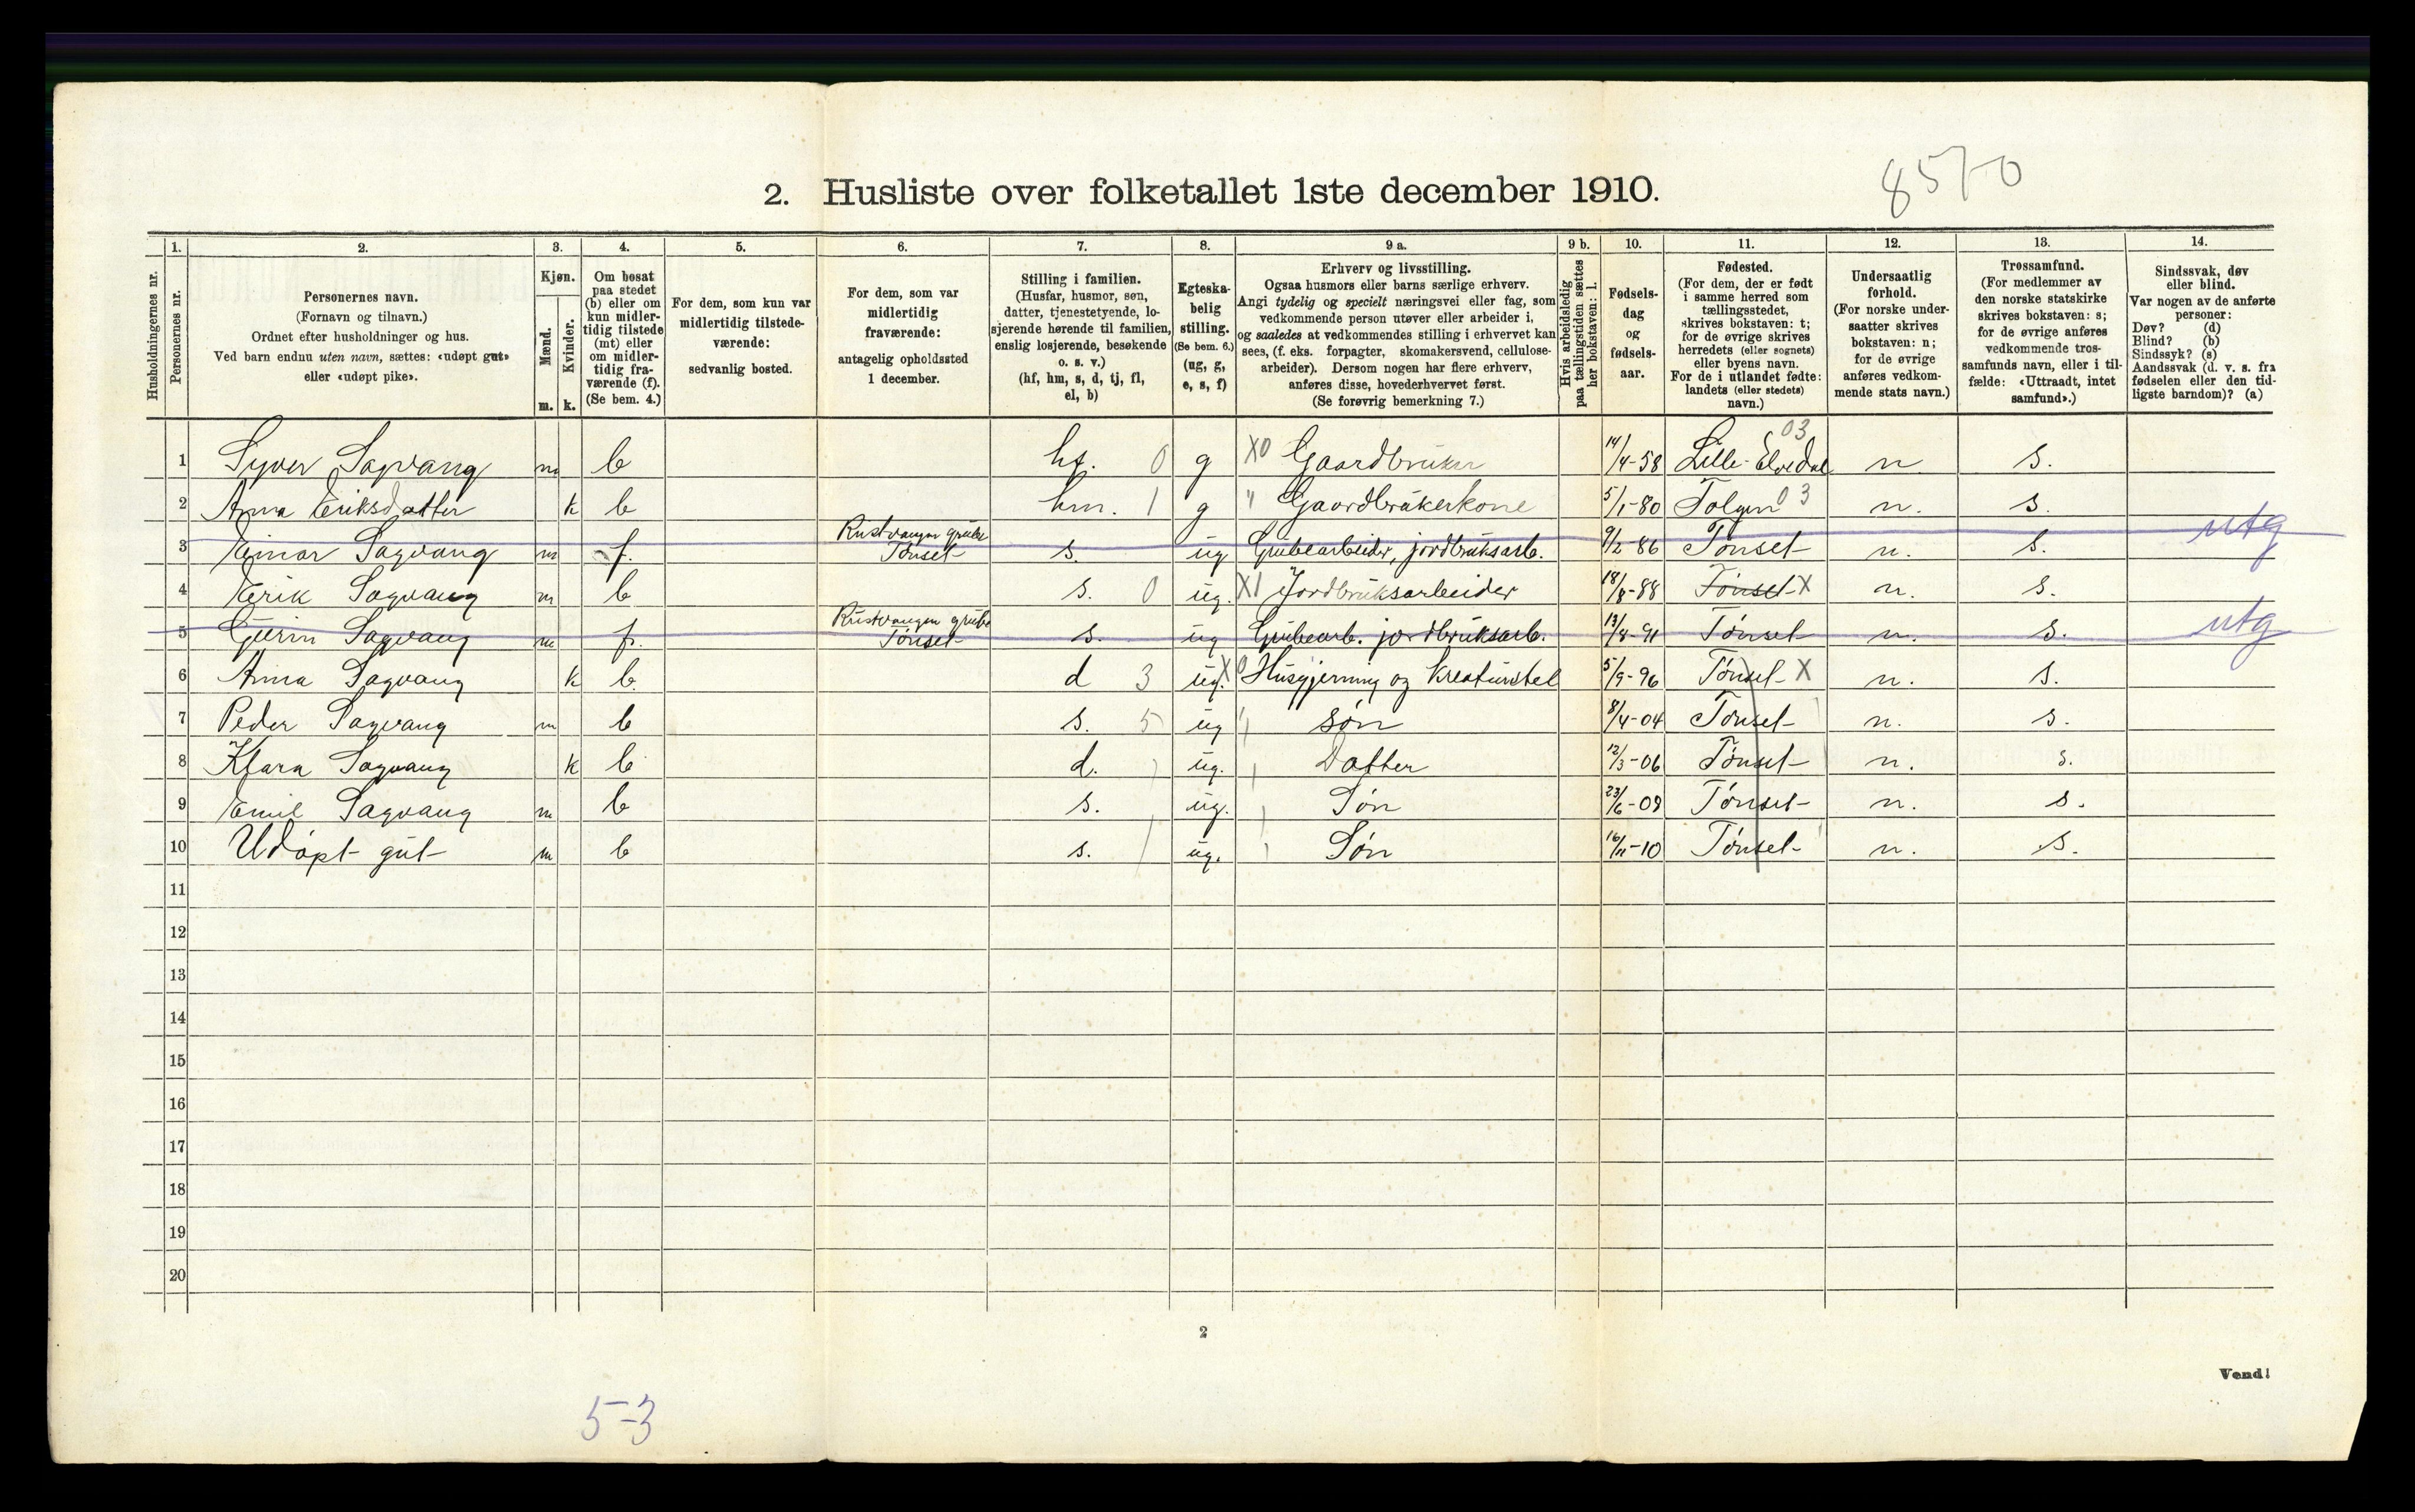 85-0
2. Husliste over folketallet 1ste december 1910.
Husholdningernes nr.
1.
Personernes nr.
2.
Personernes navn.
(Fornavn og tilnavn.)
Ordnet efter husholdninger og hus.
Ved barn endnu uten navn, sættes: «udøpt gut»
eller «udøpt pike».
3.
Kjøn.
Mænd.
Kvinder.
m. k.
4.
Om bosat
paa stedet
(b) eller om
kun midler-
tidig tilstede
(mt) eller
om midler-
tidig fra-
værende (f).
(Se bem. 4.)
5.
For dem, som kun var
midlertidig tilstede-
værende:
sedvanlig bosted.
6.
For dem, som var
midlertidig
fraværende:
antagelig opholdssted
1 december.
7.
Stilling i familien.
(Husfar, husmor, søn,
datter, tjenestetyende, lo-
sjerende hørende til familien,
enslig losjerende, besøkende
o. s. v.)
(hf, hm, s, d, tj, fl,
el, b)
8.
Egteska-
belig
stilling.
(Se bem. 6.)
(ug, g,
e, s, f)
9 a.
Erhverv og livsstilling.
Ogsaa husmors eller barns særlige erhverv.
Angi tydelig og specielt næringsvei eller fag, som
vedkommende person utøver eller arbeider i,
og saaledes at vedkommendes stilling i erhvervet kan
sees, (f. eks. forpagter, skomakersvend, cellulose-
arbeider). Dersom nogen har flere erhverv,
anføres disse, hovederhvervet først.
(Se forøvrig bemerkning 7.)
9 b.
Hvis arbeidsledig
paa tællingstiden sættes
her bokstaven: l.
10.
Fødsels-
dag
og
fødsels-
aar.
11.
Fødested.
(For dem, der er født
i samme herred som
tællingsstedet,
skrives bokstaven: t;
for de øvrige skrives
herredets (eller sognets)
eller byens navn.
For de i utlandet fødte:
landets (eller stedets)
navn.)
12.
Undersaatlig
forhold.
(For norske under-
saatter skrives
bokstaven: n;
for de øvrige
anføres vedkom-
mende stats navn.)
13.
Trossamfund.
(For medlemmer av
den norske statskirke
skrives bokstaven: s;
for de øvrige anføres
vedkommende tros-
samfunds navn, eller i til-
fælde: «Uttraadt, intet
samfund».)
14.
Sindssvak, døv
eller blind.
Var nogen av de anførte
personer:
Døv? (d)
Blind? (b)
Sindssyk? (s)
Aandssvak (d. v. s. fra
fødselen eller den tid-
ligste barndom)? (a)
1 Syver Sagvang m b hf. 0 g X0 Gaardbruker 14/4-58 Lille-Elvedal 03 n s.
2 Anna Eriksdatter k b hm. 1 g " Gaardbrukerkone 5/1-80 Tolgen 03 n. s.
3 Einar Sagvang m f. Rustvangen grube Tønset s. ug Grubearbeider, jordbruksarb. 9/2-86 Tønset n. s. utg
4 Erik Sagvang m b s. 0 ug. X1 Jordbruksarbeider 18/8-88 Tønset X n. s.
5 Sagvang m f. Rustvangen grube Tønset s. ug Grubearb. jordbruksarb. 13/8-91 Tønset n. s. utg
6 Anna Sagvang k b. d 3 ug. X0 Husgjerning og Kreaturstel 5/9-96 Tønset X n. s.
7 Peder Sagvang m b s. 5 ug " søn 8/4-04 Tønset n. s.
8 Klara Sagvang k b d. ug. Datter 12/3-06 Tønset n. s.
9 Emil Sagvang m b s. ug. Søn 23/6-09 Tønset n. s.
10 Udøpt gut m b s. ug. Søn 16/11-10 Tønset n. s.
11
12
13
14
15
16
17
18
19
20
2
Vend!
5-3